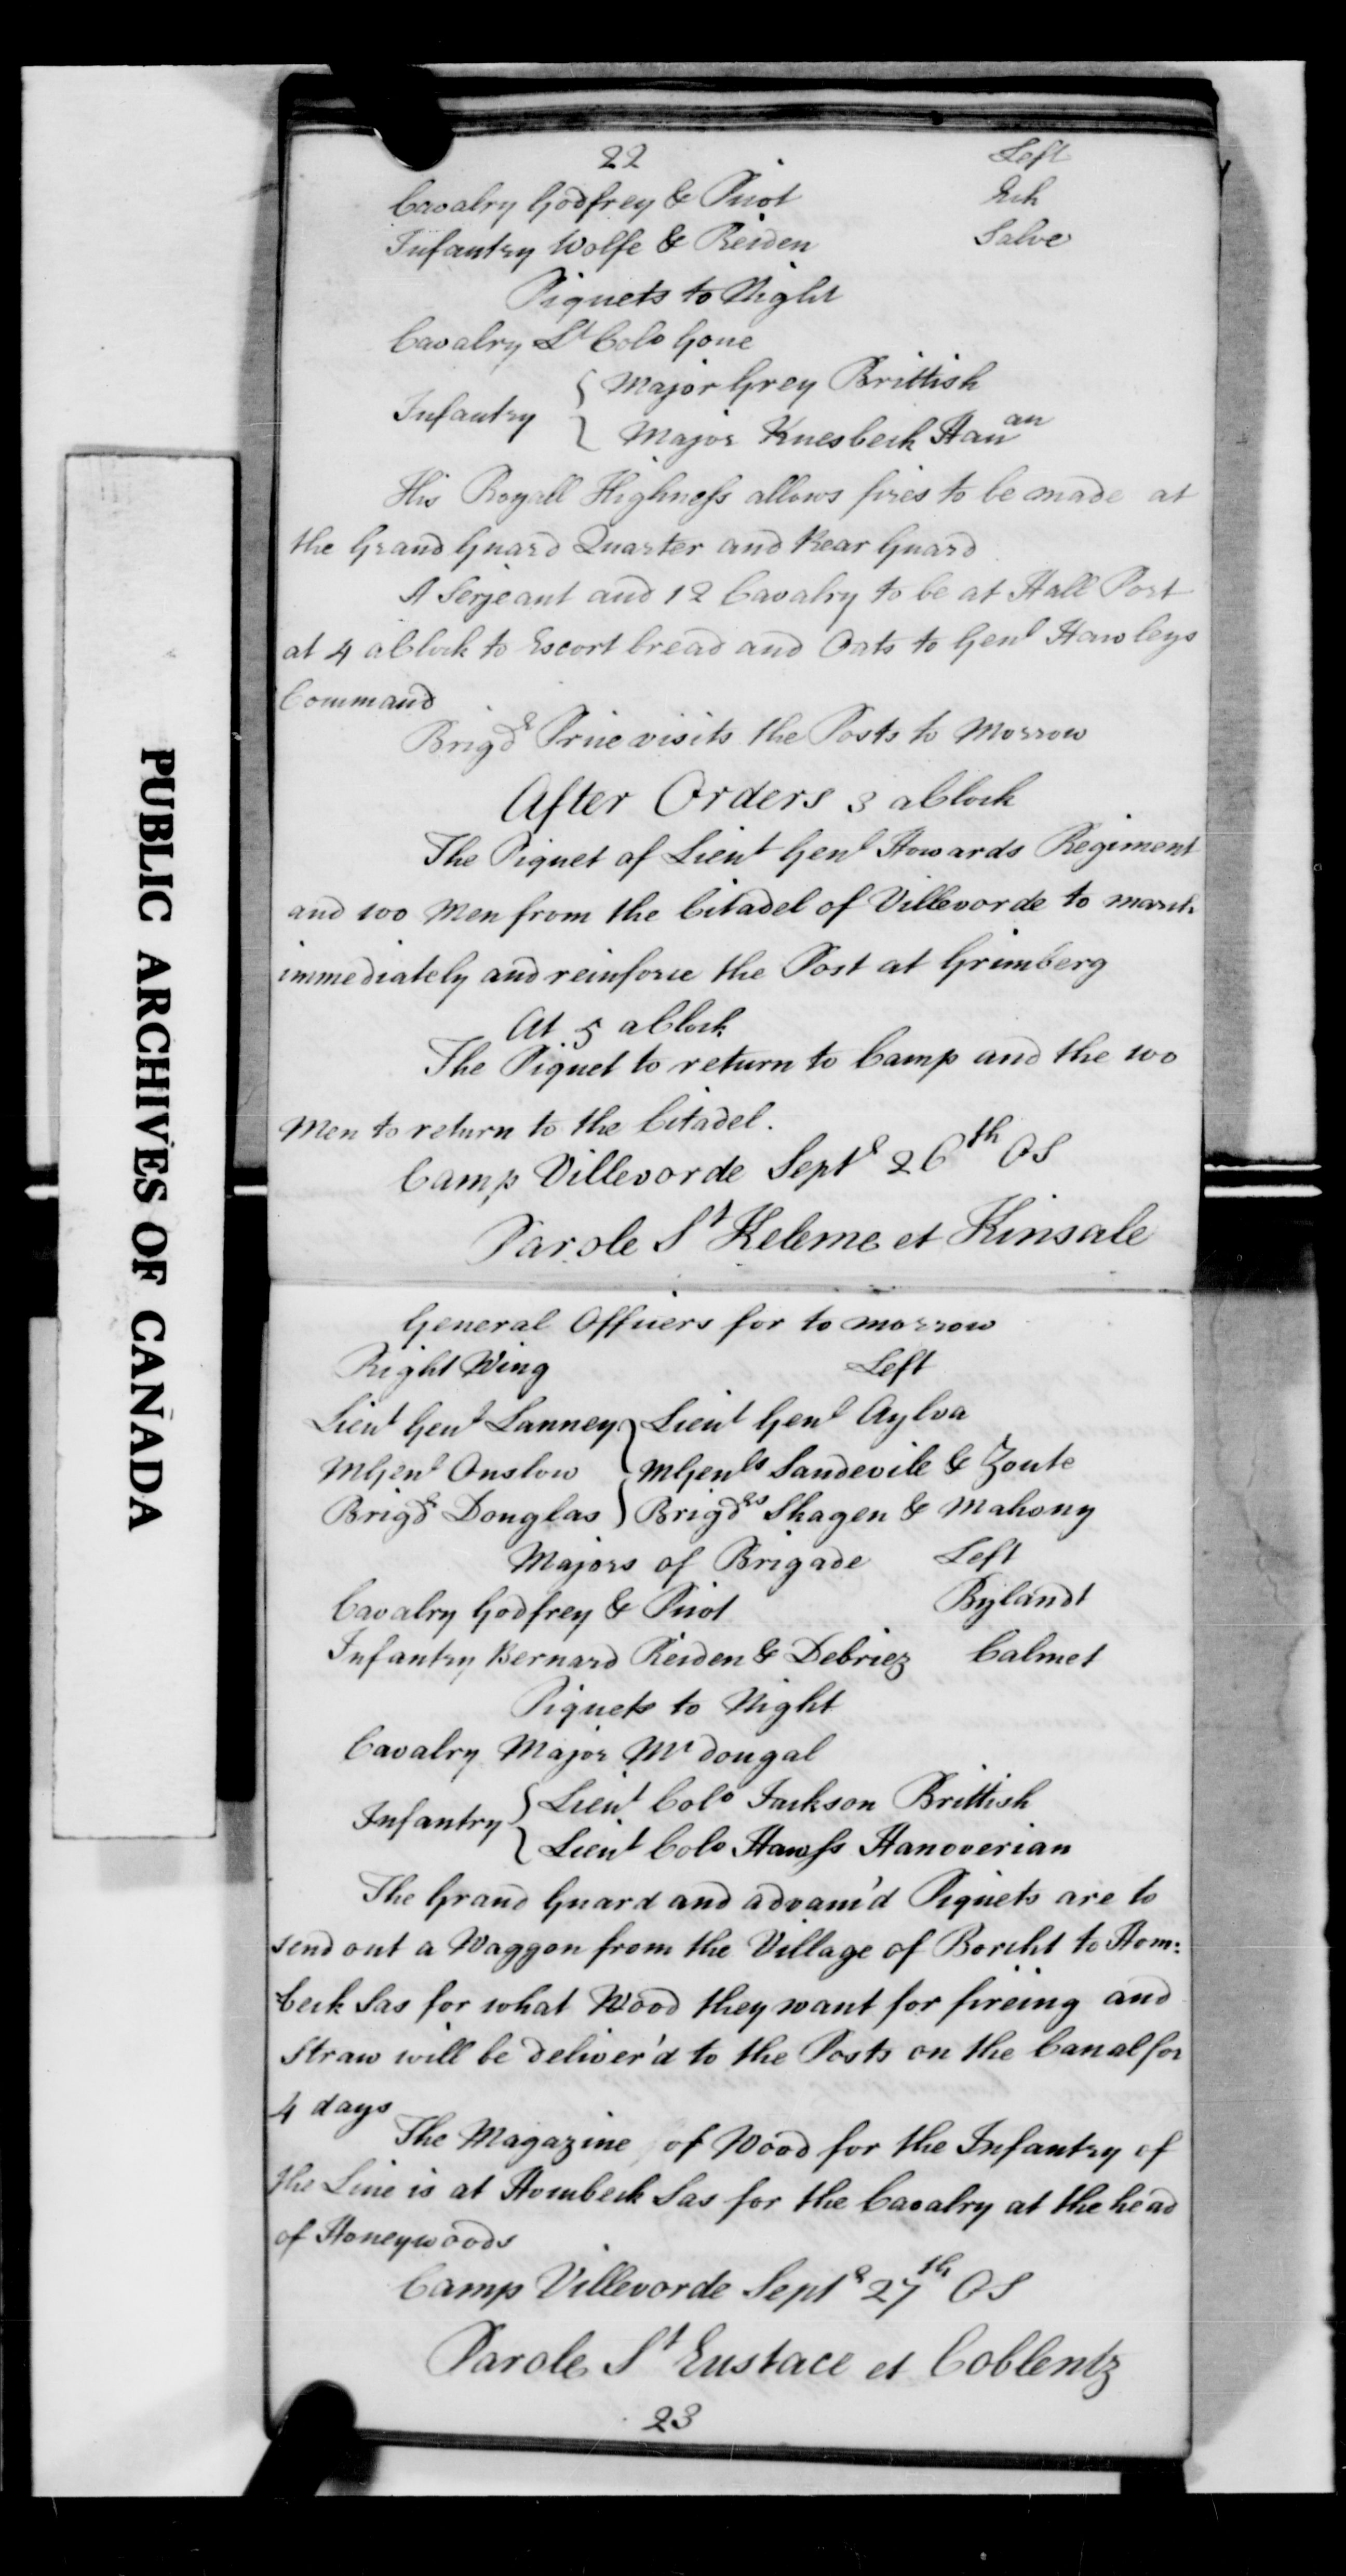 PUBLIC ARCHIVES OF CANADA
22 Left
Cavalry Godfrey & Picot Eck
Infantry Wolfe & Reiden Salve
Piquets to Night
Cavalry Lt Colo Gone
Infantry { Major Grey Brittish
Major Knesbeck Hanan
His Royall Highness allows fires to be made at
the Grand Guard Quarter and Rear Guard
A Serjeant and 12 Cavalry to be at Hall Port
at 4 aClock to Escort bread and Oats to Genl Hawleys
Command
Brigdr Price visits the Posts to Morrow
After Orders 3 aClock
The Piquet of Lieut Genl Howards Regiment
and 100 Men from the Citadel of Villevorde to march
immediately and reinforce the Post at Grimberg
At 5 aClock
The Piquet to return to Camp and the 100
Men to return to the Citadel.
Camp Villevorde Septr 26th OS
Parole St Keleme et Kinsale
General Officers for to morrow
Right Wing Left
Lieut Genl Lanney } Lieut Genl Aylva
MGenl Onslow } MGenls Sandevile & Zoute
Brigdr Douglas } Brigdrs Shagen & Mahony
Majors of Brigade Left
Cavalry Godfrey & Picot Bylandt
Infantry Bernard Reiden & Debriez Calmet
Piquets to Night
Cavalry Major Mc dougal
Infantry { Lieut Colo Jackson Brittish
Lieut Colo Hawss Hanoverian
The Grand Guard and advanc'd Piquets are to
send out a Waggon from the Village of Borcht to Hom:
=beck Sas for what Wood they want for fireing and
Straw will be deliver'd to the Posts on the Canal for
4 days
The Magazine of Wood for the Infantry of
the Line is at Hombeck Sas for the Cavalry at the head
of Honeywoods
Camp Villevorde Septr 27th OS
Parole St Eustace et Coblentz
23